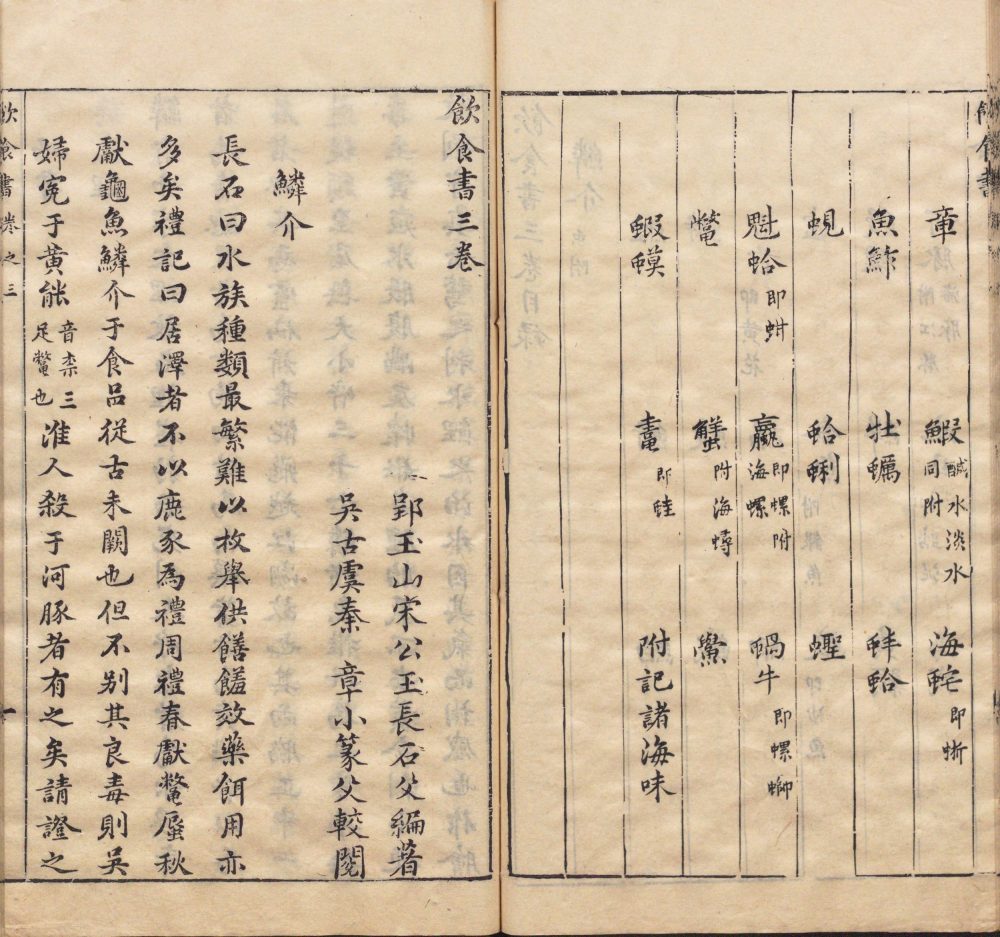 飲食書
章 鰕鹹水淡水同附 海䖳即蜇
魚鮓 牡蠣 蚌蛤
蜆 蛤蜊 蟶
魁蛤即蚶 蠃即螺附海螺 蝸牛即螺螄
鱉 蟹附海蟳 鱟
蝦蟆 鼃即蛙 附記諸海味
飲食書三卷
郢玉山宋公玉長石父編著
吳古虞秦 章小篆父較閱
鱗介
長石曰水族種類最繁難以枚舉供饍饈效藥餌用亦
多矣禮記曰居澤者不以鹿豕為禮周禮春獻鱉蜃秋
獻龜魚鱗介于食品從古未闕也但不別其良毒則吳
婦寃于黄能音柰三足鱉也淮人殺于河豚者有之矣請證之
飲食書卷之三
一